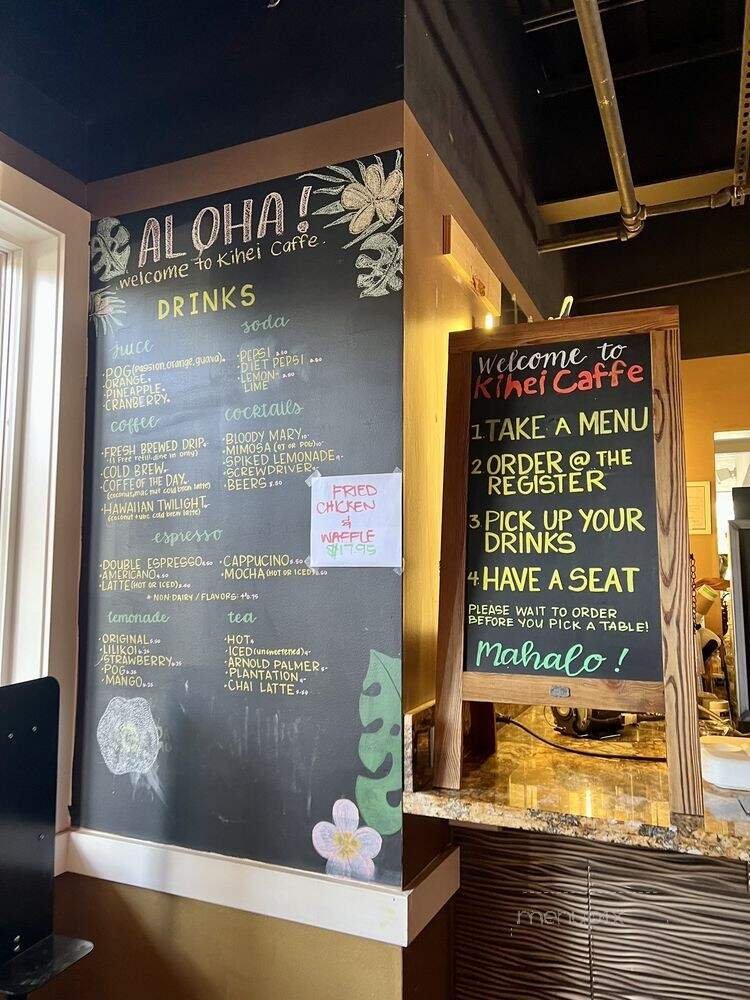 ALOHA!
welcome to Kihei Caffe.
DRINKS
juice
•POG (passion, orange, guava)
•ORANGE
•PINEAPPLE
•CRANBERRY
soda
•PEPSI
•DIET PEPSI
•LEMON-
LIME
coffee
•FRESH BREWED DRIP
(1 free refill, dine in only)
•COLD BREW
•COFFEE OF THE DAY
(coconut, mac nut cold brew latte)
•HAWAIIAN TWILIGHT
cocktails
•BLOODY MARY
•MIMOSA (OJ or POG)
•SPIKED LEMONADE
•SCREWDRIVER
•BEERS
FRIED
CHICKEN
&
WAFFLE
$17.95
espresso
•DOUBLE ESPRESSO
•AMERICANO
•LATTE (HOT OR ICED)
•CAPPUCINO
•MOCHA (HOT OR ICED)
* NON-DAIRY / FLAVORS: +.75
lemonade
•ORIGINAL
•LILIKOI
•STRAWBERRY
•POG
•MANGO
tea
•HOT
•ICED (unsweetened)
•ARNOLD PALMER
•PLANTATION
•CHAI LATTE
Welcome to
Kihei Caffe
1. TAKE A MENU
2 ORDER @ THE
REGISTER
3 PICK UP YOUR
DRINKS
4. HAVE A SEAT
PLEASE WAIT TO ORDER
BEFORE YOU PICK A TABLE!
Mahalo!
menupix